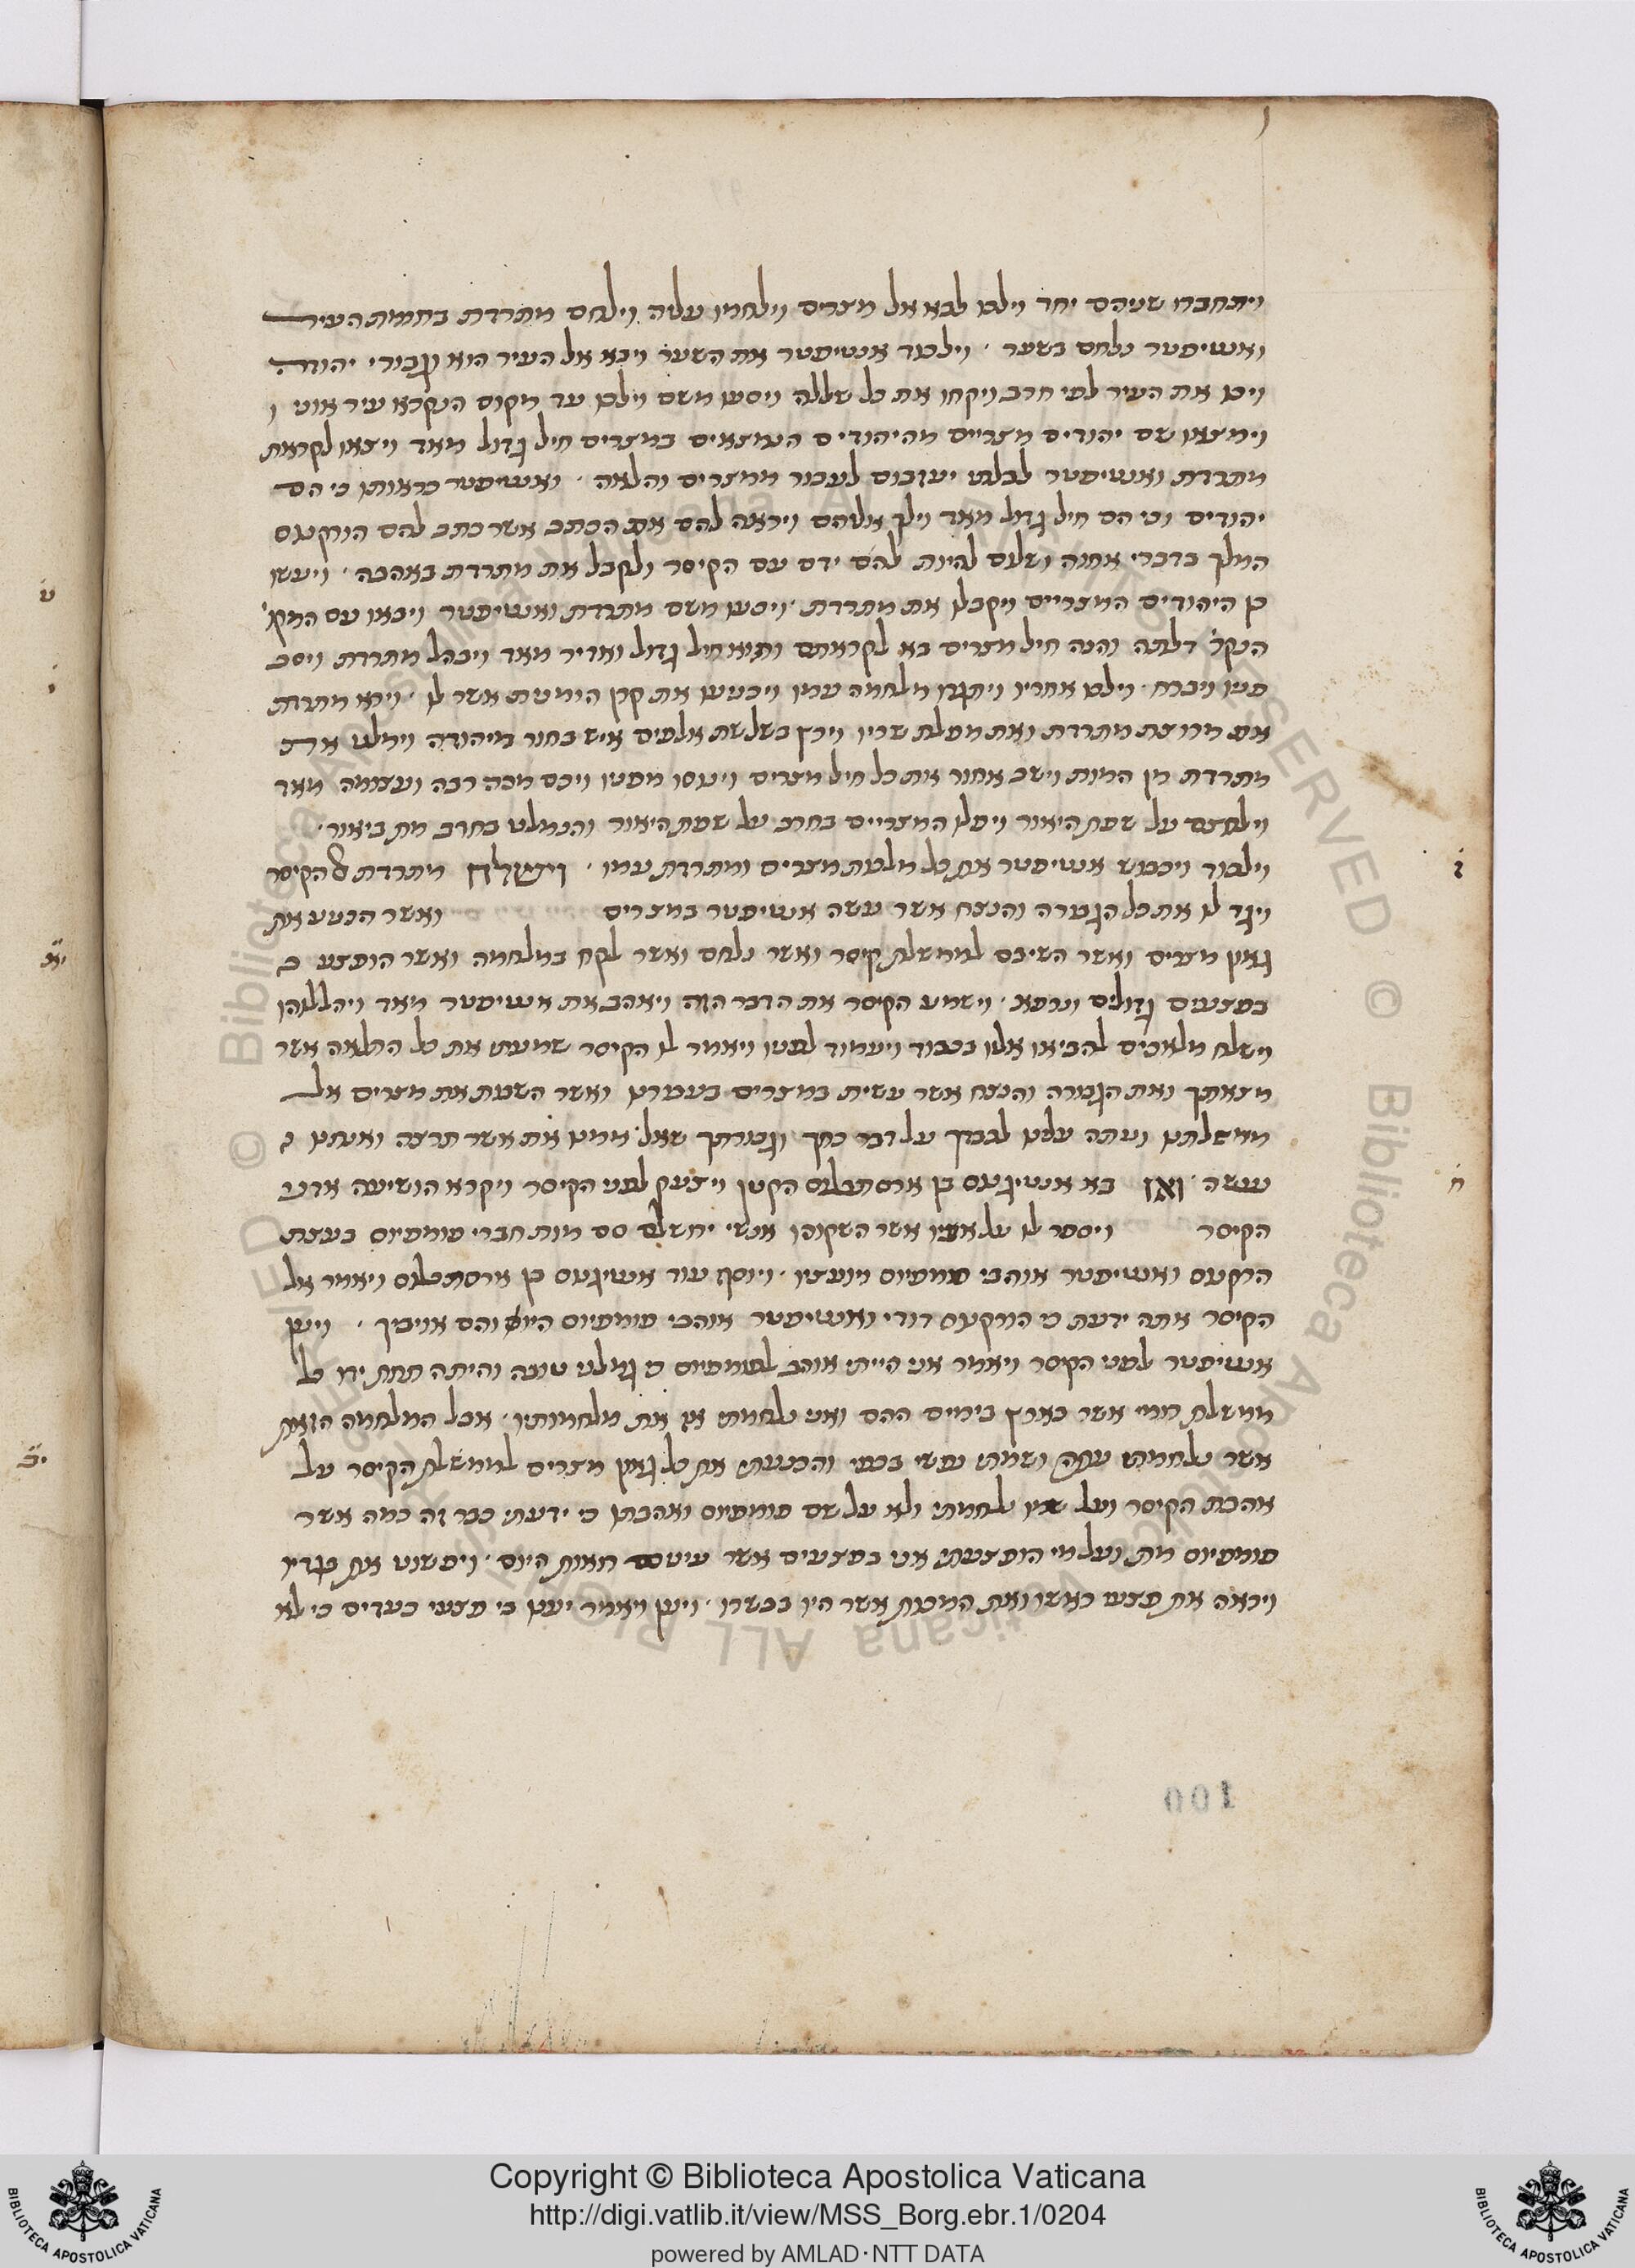 ויתחברו שניהם יחד וילכו לבא אל מצרים וילחמו עליה וילחם מתרדת בחומת העיר
ואנטיפטר נלחם בשער ׳ וילכוד אנטיפטר את השער ויבא אל העיר הוא וגבורי יהודה
ויכו את העיר לפי חרב ויקחו את כל שללה ויסעו משם וילכו עד מקום הנקרא עיר אוני ו
וימצאו שם יהודים מצריים מהיהודים הנמצאים במצרים חיל גדול מאד ויצאו לקראת
מתרדת ואנטיפטר לבלתי יעזבום לעבור ממצרים והלאה ׳ ואנטיפטר כראותו כי הם
יהודים וכי הם חיל גדול מאד וילך אליהם ויראה להם את הכתב אשר כתב להם הורקנוס
המלך בדברי אחוה ושלום להיות להם ידם עם הקיסר ולקבל את מתרדת באהבה ׳ ויעשו
כן היהודים המצריים ויקבלו את מתרדת ׳ ויסעו משם מתרדת ואנטיפטר ויבאו עם המקו׳
הנקר׳ דלתה והנה חיל מצרים בא לקראתם והוא חיל גדול ואדיר מאד ויבהל מתרדת ויסב
פניו ויברח ׳ וילכו אחריו ויתגרו מלחמה עמו ויכנעו את קרן הימנית אשר לו ׳ וירא מתרדת
את מרוצת מתרדת ואת מפלת שריו וירץ בשלשת אלפים איש בחור מיהודה וימלט את
מתרדת מן המות וישב אחור את כל חיל מצרים וינוסו מפניו ויכם מכה רבה ועצומה מאד
וילחצם על שפת היאור ויפלו המצריים בחרב על שפת היאור והנמלט בחרב מת ביאור ׳
וילכוד ויכבוש אנטיפטר את כל מלכות מצרים ומתרדת עמו ׳ וישלח מתרדת אל הקיסר
ויגד לו את כל הגבורה והנצח אשר עשה אנטיפטר במצרים ואשר הכניע את
גאון מצרים ואשר השיבם לממשלת קיסר ואשר נלחם ואשר לקח במלחמה ואשר הופצע כ
בפצעים גדולים ונרפא ׳ וישמע הקיסר את הדבר הזה ויאהב את אנטיפטר מאד ויהללוהו
וישלח מלאכים להביאו אליו בכבוד ויעמוד לפניו ויאמר לו הקיסר שמעתי את כל התלאה אשר
מצאתך ואת הגבורה והנצח אשר עשית במצרים בעבורינו ואשר השבות את מצרים אל
ממשלתינו ועתה עלינו לכבדך על דבר כחך וגבורתך שאל ממנו את אשר תרצה ואנחנו נ
נעשה ׳ ואז בא אנטיגנוס בן ארסתבלוס הקטן ויצעק לפני הקיסר ויקרא הושיעה אדני
הקיסר ויספר לו על אביו אשר השקוהו אנשי ירושלם סם מות חברי פומפיוס בעצת
הרקנוס ואנטיפטר אוהבי פומפיוס ויועציו ׳ ויוסף עוד אנטיגנוס בן ארסתבלוס ויאמר אל
הקיסר אתה ידעת כי הורקנוס דודי ואנטיפטר אוהבי פומפיוס היו והם אויביך ׳ ויען
אנטיפטר לפני הקיסר ויאמר אני הייתי אוהב לפומפיוס כי גמלני טובה והיתה תחת ידו כל
ממשלת רומי אשר בארץ בימים ההם ואני נלחמתי אז את מלחמותיו ׳ אבל המלחמה הזאת
אשר נלחמתי עתה ושמתי נפשי בכפי והכנעתי את כל גאון מצרים לממשלת הקיסר על
אהבת הקיסר ועל שמו נלחמתי ולא על שם פומפיוס ואהבתו כי ידעתי כבר זה כמה אשר
פומפיוס מת ועל מי הופצעתי אני בפצעים אשר עיניכם רואות היום ׳ ויפשוט את בגדיו
ויראה את פצעי ראשו ואת המכות אשר היו בבשרו ׳ ויען ויאמר יענו בי פצעי כעדים כי לא
100